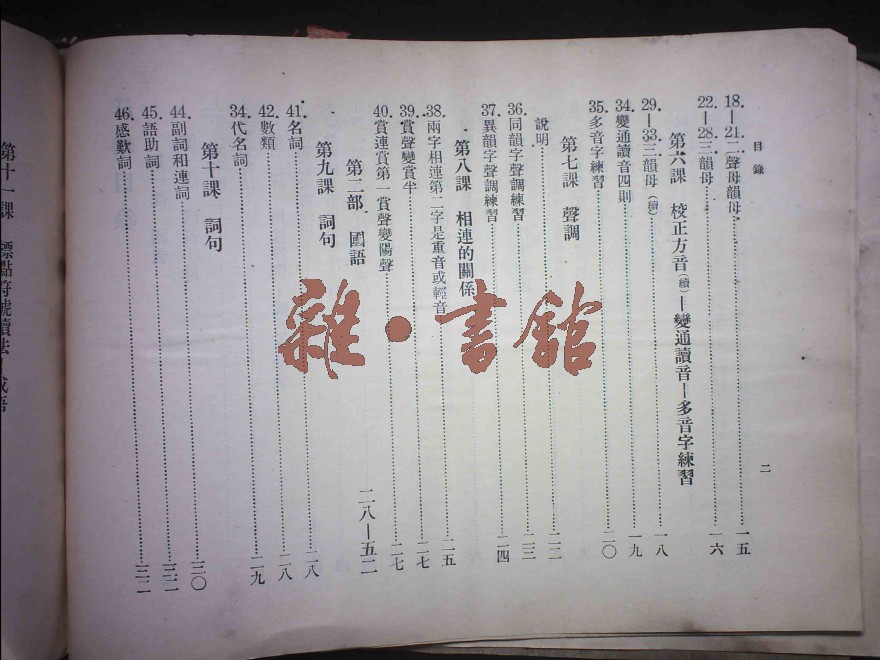 目錄
二
18.—21.二聲母韻母……一五
22.—28.三韻母……一六
第六課 校正方音(續)—變通讀音—多音字練習
29.—33.三韻母(續)……一八
34.變通讀音四則……一九
35.多音字練習……二〇
第七課 聲調
說明……二二
36.同韻字聲調練習……二三
37.異韻字聲調練習……二四
第八課 相連的關係
38.兩字相連第二字是重音或輕音……二五
39.賞聲變賞半……二七
40.賞連賞第一賞聲變陽聲……二七
第二部 國語……二八—五二
第九課 詞句
41.名詞……二八
42.數類……二八
34.代名詞……二九
第十課 詞句……三〇
44.副詞和連詞……三二
45.語助詞……三二
46.感歎詞……三二
第十一課 標點符號讀法—成語
雜·書館